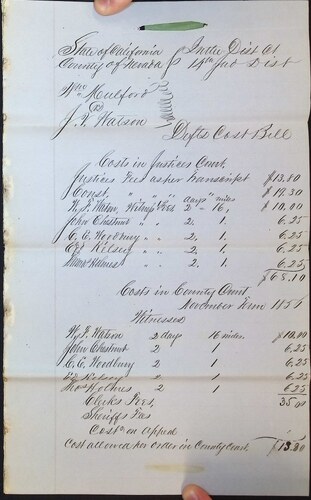 State of California } In the Dist Ct
County of Nevada } 14th Jud Dist
Wm Mulford
vs
J. F. Watson
Defts Cost Bill
Costs in Justices Court
Justices Fees as per Transcript $13.80
Const. " " " " $14.30
W. F. Watson, Witness Fees 2 days 16 miles $10.00
John Chestnut " " 2, 1, 6.25
C. C. Woodbury " " 2, 1, 6.25
Kelsey " " 2, 1, 6.25
Holmes " " 2, 1, 6.25
$63.10
Costs in County Court
November Term 185
Witnesses
W. F. Watson 2 days 16 miles $10.00
John Chestnut 2 1 6.25
C. C. Woodbury 2 1 6.25
Kelsey 2 1 6.25
Holmes 2 1 6.25
35.00
Clerks Fees,
Sheriffs Fees
Costs on Appeal
Cost allowed per order in County Court, $13.80